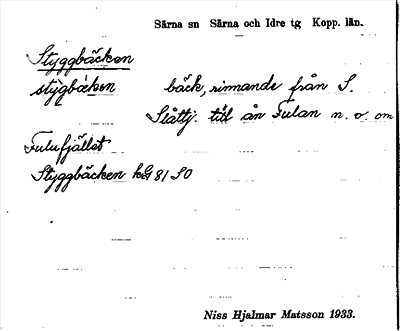 Särna sn Särna och Idre tg Kopp. län.
Styggbäcken
stýgbä̀ken bäck, rinnande från S.
Slåttj. till ån Fulan n. v. om
Fulufjället
Styggbäcken kG 81 SO
Niss Hjalmar Matsson 1933.